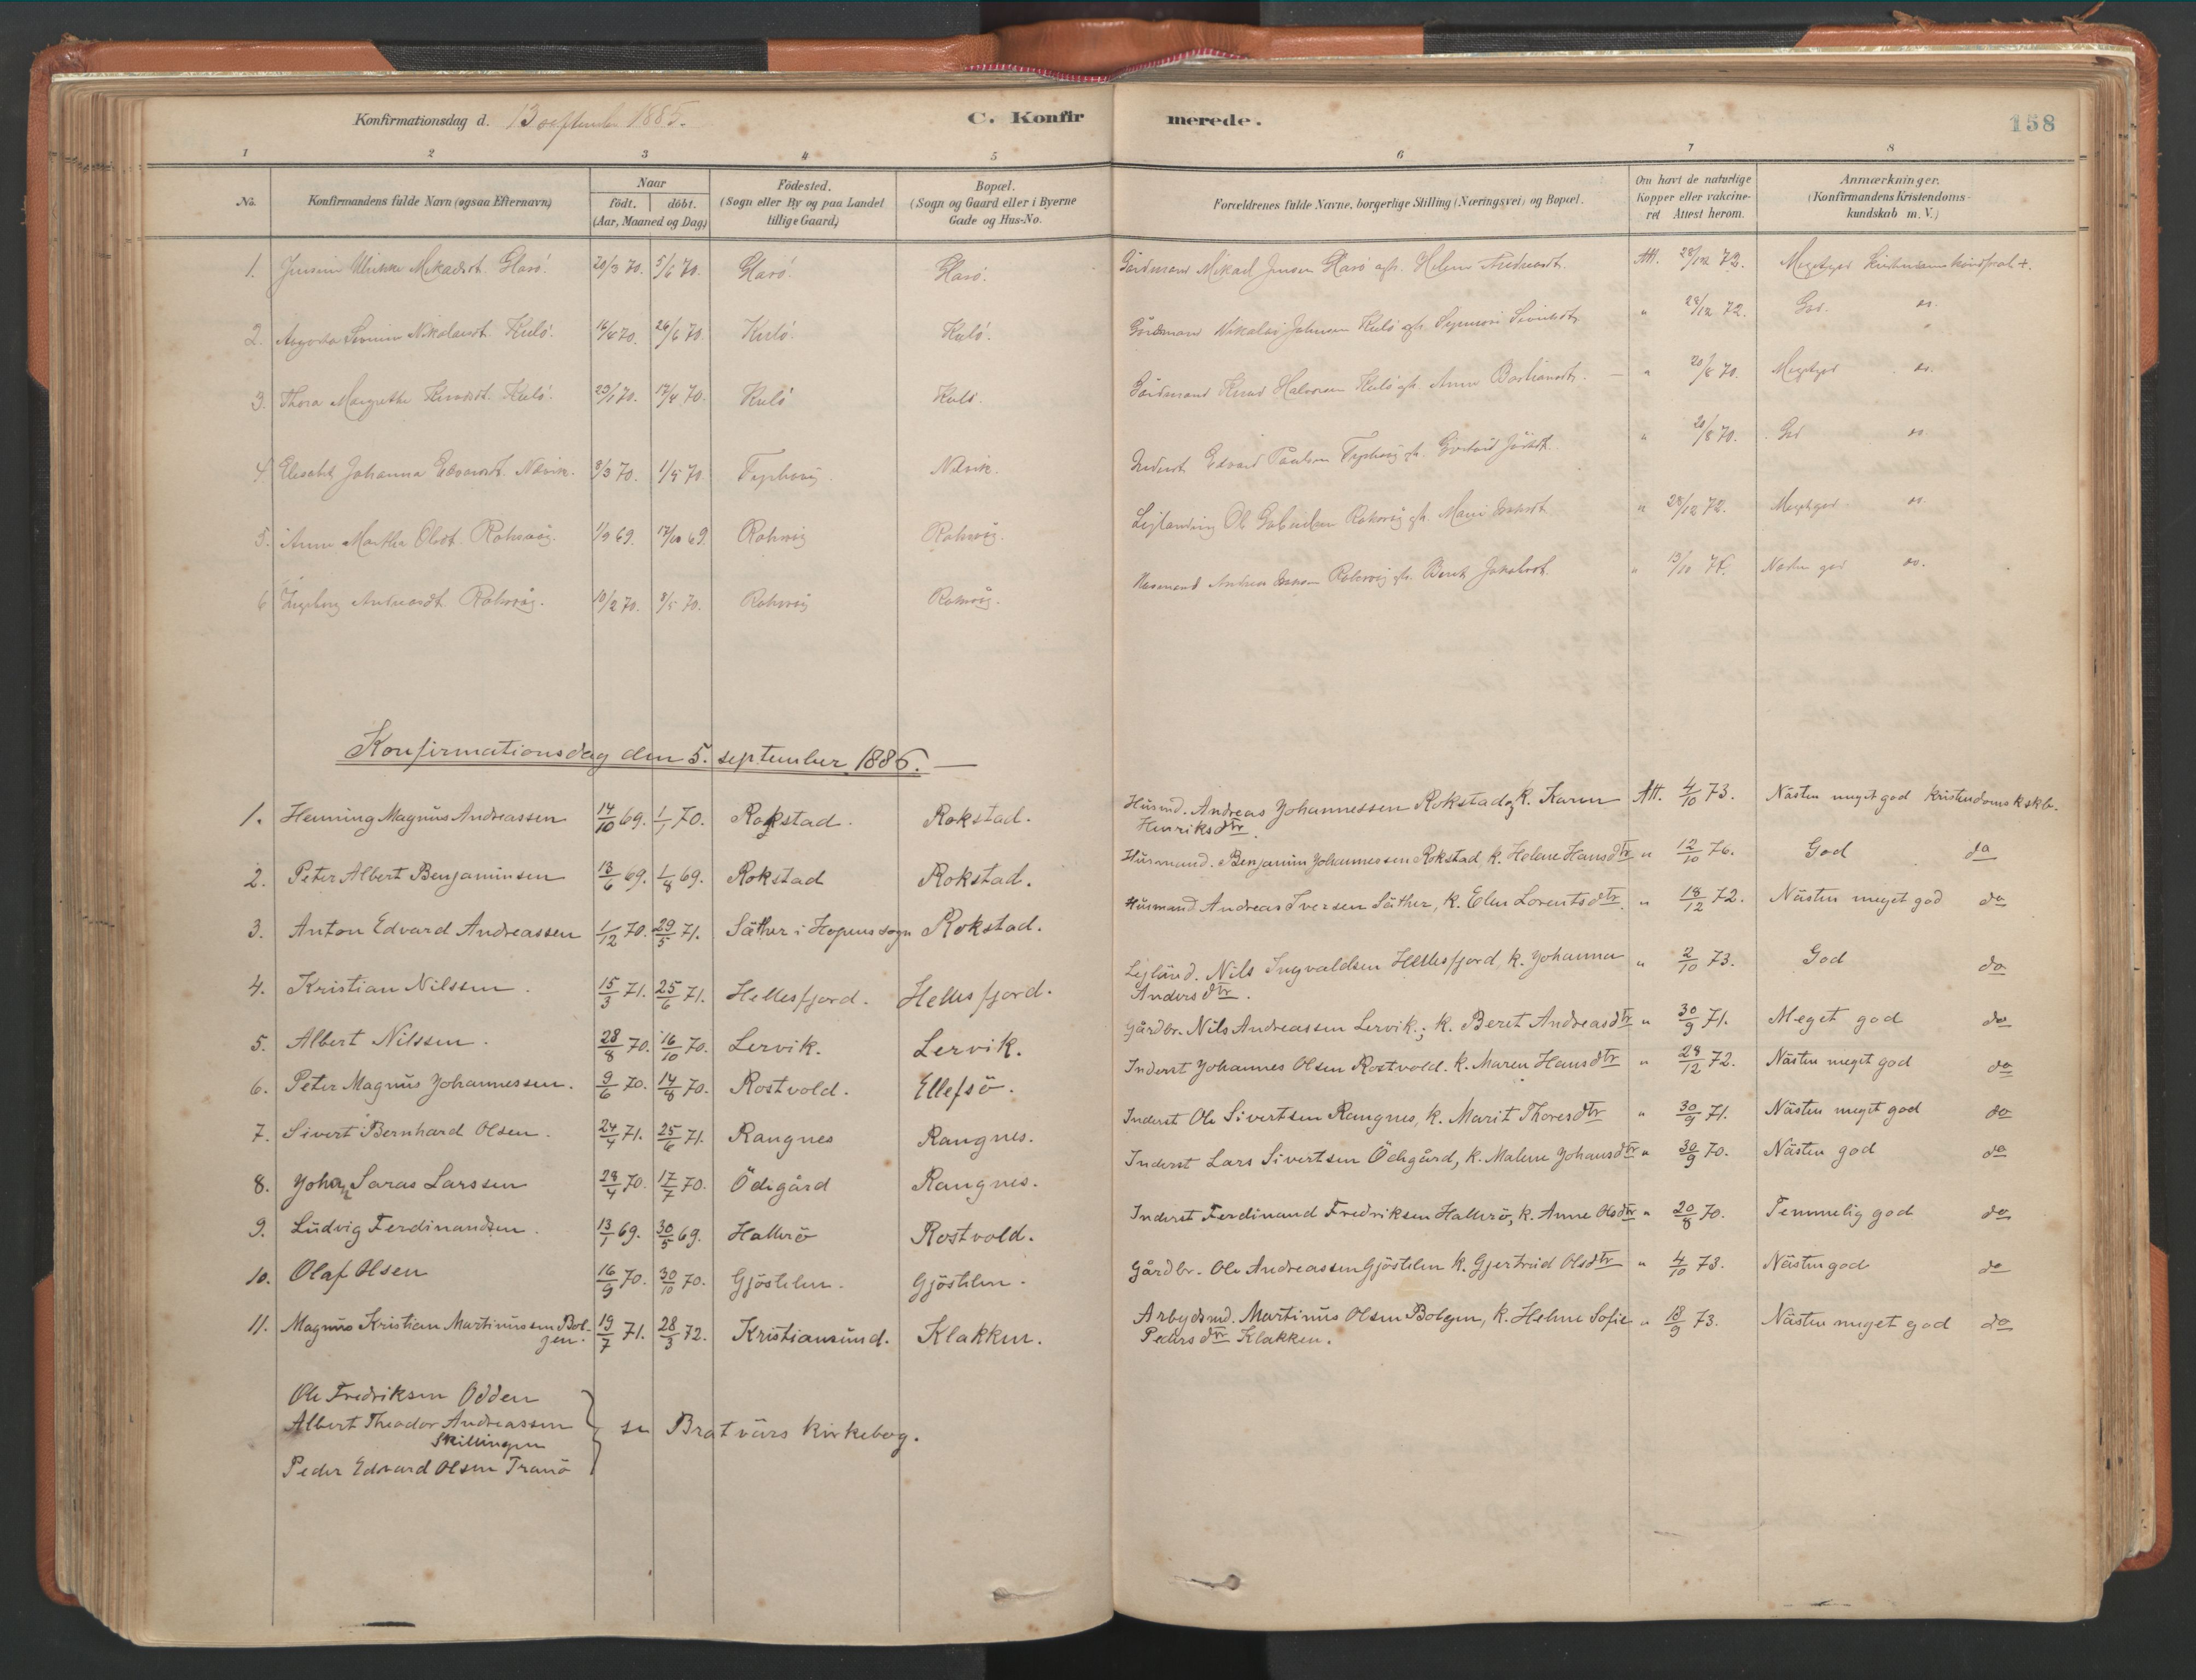 Konfirmationsdag d. 13 september 1885.
C. Konfirmerede.
158
1 2 3 4 5 6 7 8
No. Konfirmandens fulde Navn (ogsaa Efternavn) Naar født. døbt. (Aar, Maaned og Dag) Fødested. (Sogn eller By og paa Landet tillige Gaard) Bopæl. (Sogn og Gaard eller i Byerne Gade og Hus-No. Forældrenes fulde Navne, borgerlige Stilling (Næringsvei) og Bopæl. Om havt de naturlige Kopper eller vakcineret Attest herom. Anmærkninger. (Konfirmandens Kristendomskundskab m. V.)
1. Ulrikke Mikaelsdt. Glasø. 20/3 70. 5/6 70. Glasø. Glasø. Gårdmand Mikael Jensen Glasø Helene Andreasdt. Att. 28/12 72. Megetgod
2. Nikolaisdt. Kulø. 16/4 70. 26/6 70. Kulø. Kulø. Gårdmand Nikolai Johnsen Kulø " 28/12 72. God. do.
3. Thora Margrethe Knudsdt. Kulø. 23/1 70. 17/4 70. Kulø Kulø. Gårdmand Knud Halvorsen Kulø Anne " 20/8 70. Megetgod do.
4. Elisabet Johanna Edvardsdt. Nævik. 8/3 70. 1/5 70. Nævik. Inderst Edvard Paulsen " 20/8 70. God do.
5. Anna Martha Olsdt. Rokvåg. 1/9 69. 17/10 69. Rokvåg Rokvåg. Ole Rokvåg Marie " 28/12 72. Megetgod do.
6 Ingeborg Andreasdt. Rokvåg. 10/2 70. 8/5 70. Rokvåg Rokvåg. Husmand Andreas Rokvåg Berit Jakobsdt. " 13/10 Næsten god do.
Konfirmationsdag den 5. september 1886. —
1. Henning Magnus Andreassen 14/10 69. 1/1 70. Rokstad. Rokstad. Husmd. Andreas Johannessen Rokstad, k. Karen Henriksdtr. Att. 4/10 73. Nästen meget god Kristendomskskb.
2. Peter Albert Benjaminsen 13/6 69. 1/8 69. Rokstad Rokstad. Husmand. Benjamin Johannessen Rokstad, k. Helene Hansdtr " 12/10 76. God do
3. Anton Edvard Andreassen 1/12 70. 29/5 71. Säther i Hopens sogn Rokstad. Husmand Andreas Iversen Säther, k. Elen Lorentsdtr. " 18/12 72. Nästen meget god do
4. Kristian Nilssen. 15/3 71. 25/6 71. Hellesfjord. Hellesfjord. Lejländ. Nils Ingvaldsen Hellesfjord, k. Johanna Andersdtr. " 2/10 73. God do
5. Albert Nilssen. 28/8 70. 16/10 70. Lervik. Lervik. Gårdbr. Nils Andreassen Lervik.; k. Beret Andreasdtr " 30/9 71. Meget god do
6. Peter Magnus Johannessen. 9/6 70. 14/8 70. Rostvold. Ellefsö. Inderst Johannes Olsen Rostvold. k. Maren Hansdtr " 28/12 72. Nästen meget god do
7. Sivert Bernhard Olsen. 24/4 71. 25/6 71. Rangnes Rangnes. Inderst Ole Sivertsen Rangnes, k. Marit Thoresdtr " 30/9 71. Nästen meget god do
8. Johan Saras Larssen 28/4 70. 17/7 70. Ödegård Rangnes. Inderst Lars Sivertsen Ödegård, k. Malene Johansdtr " 30/9 70. Nästen god do
9. Ludvig Ferdinandsen. 13/1 69. 30/5 69. Hallerö Rostvold. Inderst Ferdinand Fredriksen Hallerö, k. Anne Olsdtr " 20/8 70. Temmelig god do
10. Olaf Olsen 16/9 70. 30/10 70. Gjöstelen. Gjöstelen. Gårdbr. Ole Andreassen Gjöstelen k. Gjertrud Olsdtr " 4/10 73. Nästen god do
11. Magnus Kristian Martinussen Bolgen. 19/7 71. 28/3 72. Kristiansund. Klakken. Arbejdsmd. Martinus Olsen Bolgen, k. Helene Sofie Pedersdtr Klakken. " 18/9 73. Nästen meget god do
Ole Fredriksen Odden
Albert Theodor Andreassen Skillingen } se Bratvärs Kirkebog.
Peder Edvard Olsen Tranö